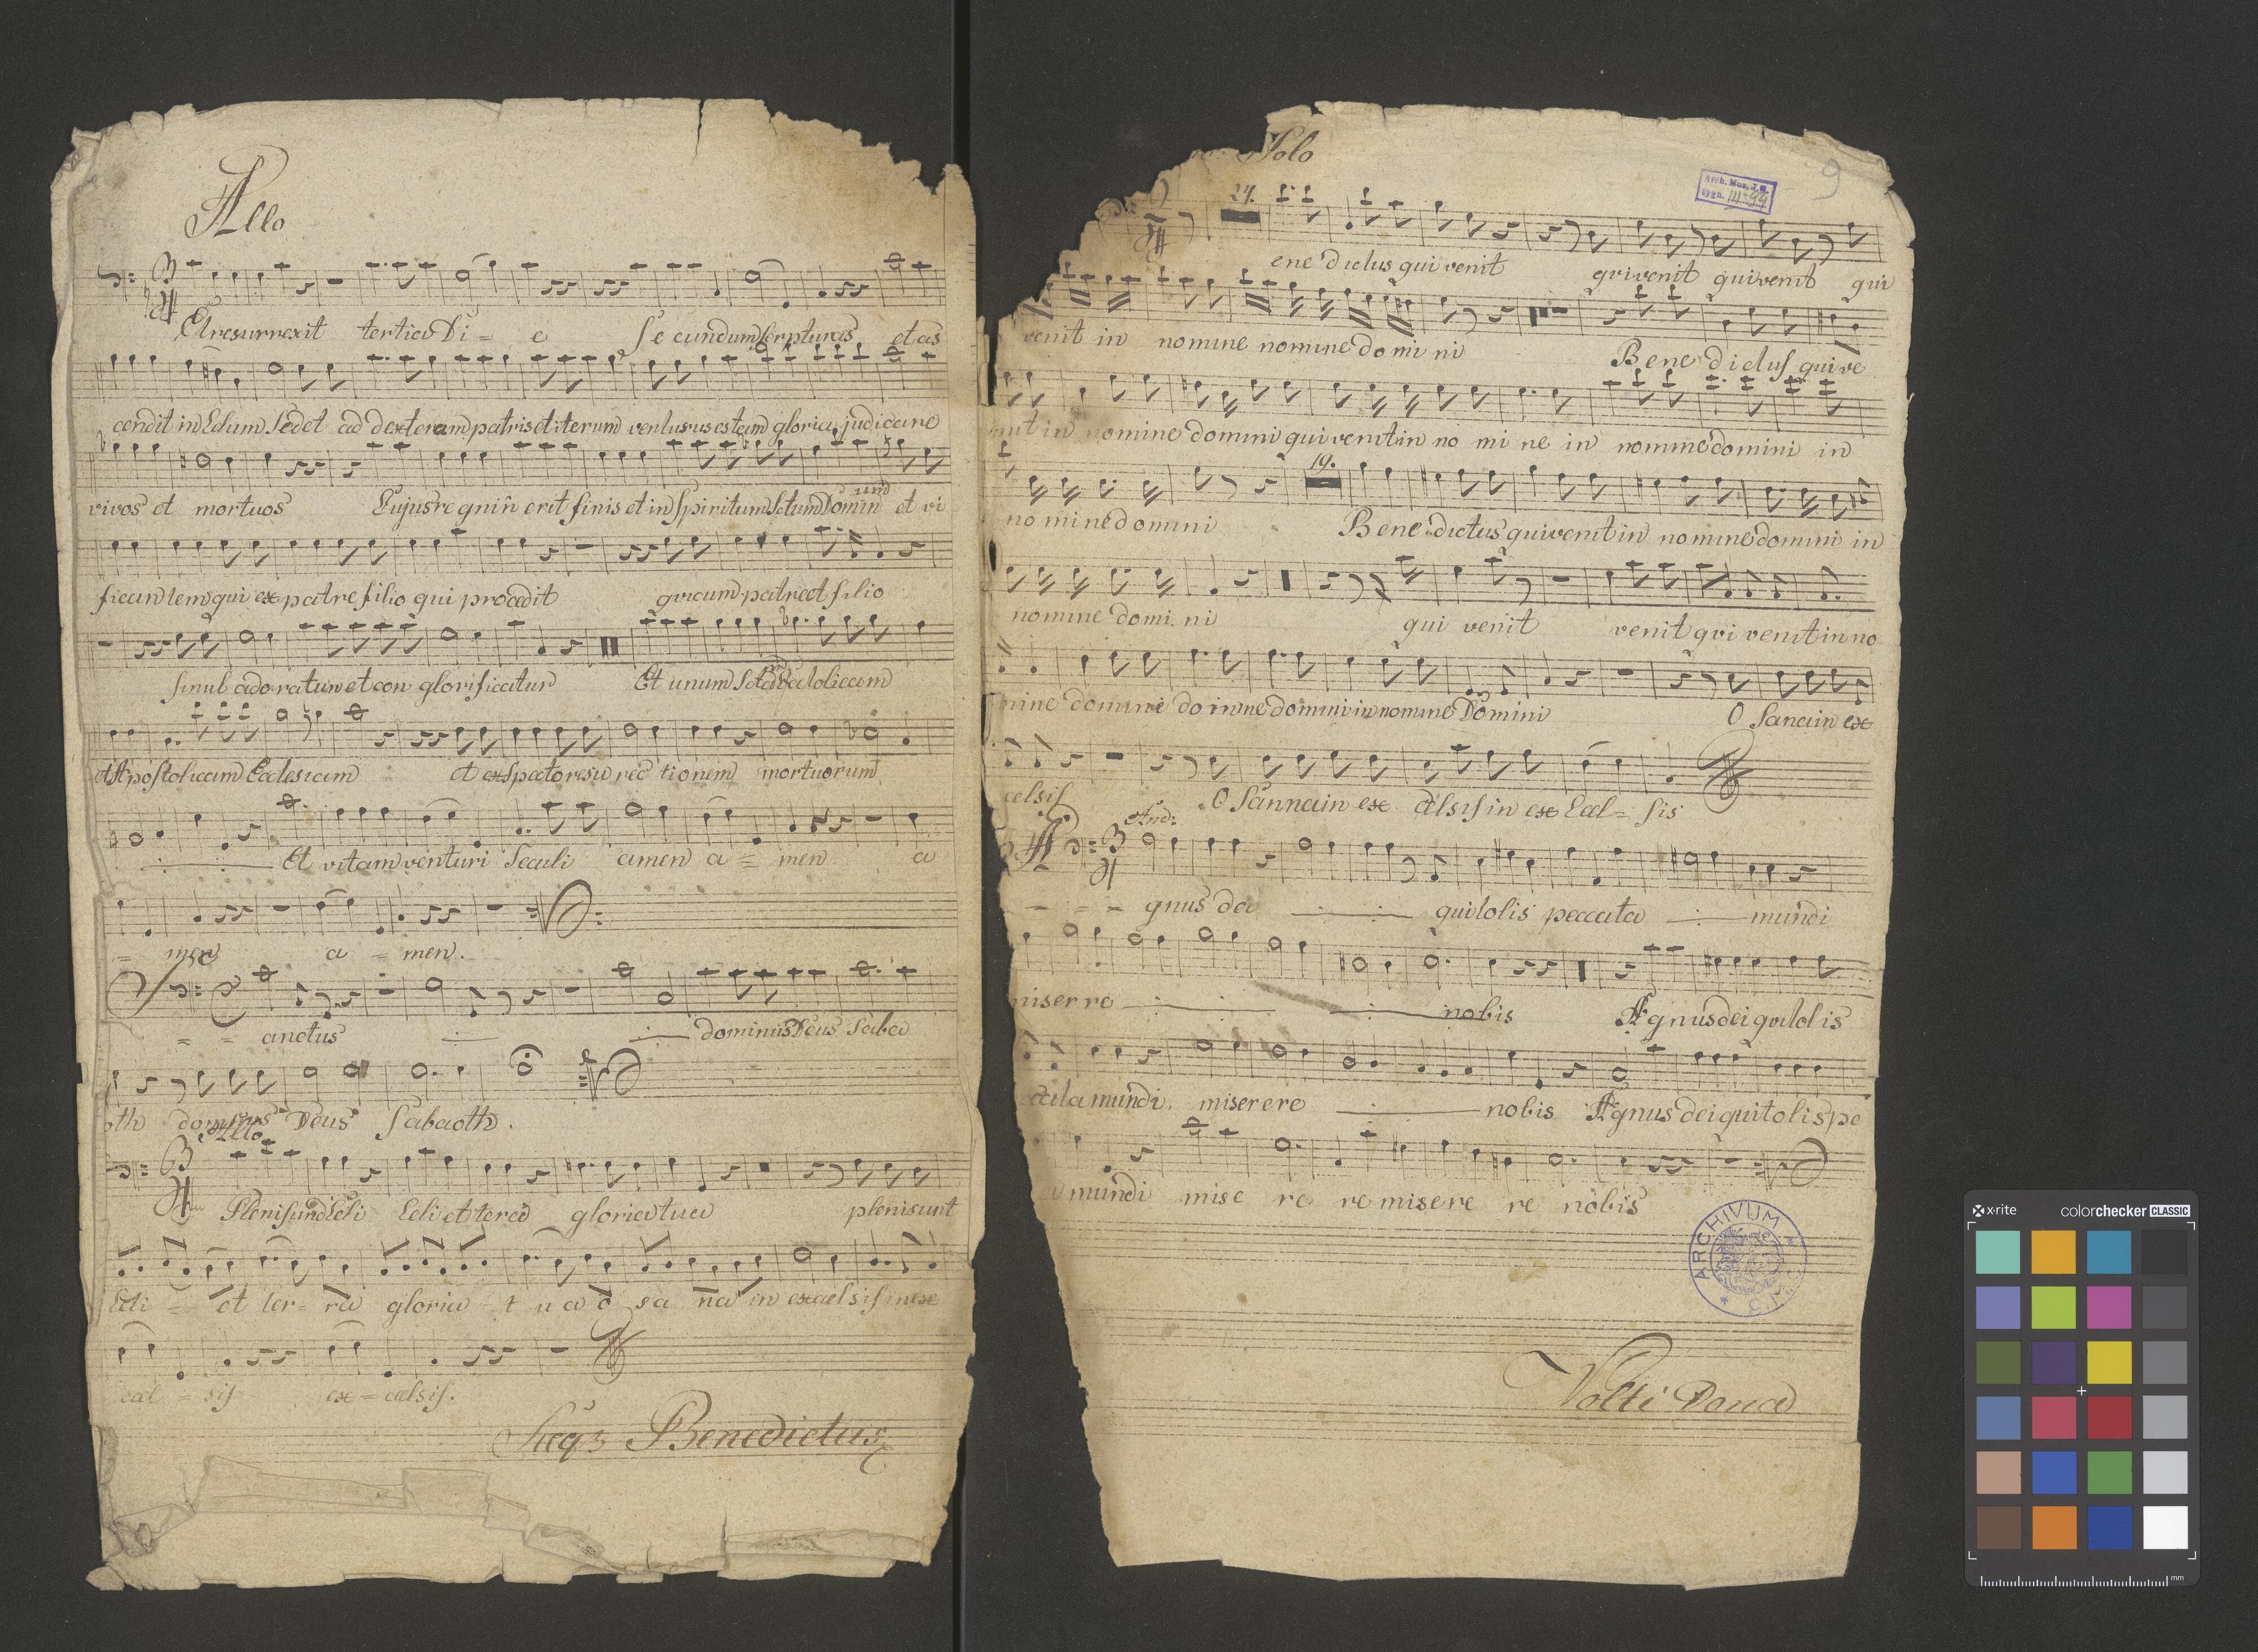 Allo
Et resurrexit tertia Di = e Se cundum Scripturas et as
cendit in Celum Sedet ad dexteram patris et iterum venturus est cum gloria judicare
vivos et mortuos Cujus regni n̄ erit finis et in Spiritum Sctum Domin num et vi
ficantem qui ex patre filio qui procedit qui cum patre et filio
simul adoratur et con glorificatur Et unum Sctam Catolicam
et Apostolicam Eclesiam et exspecto resu rec tionem mortuorum
Et vitam venturi Seculi amen a = men a
= men a = men.
= = anctus dominus Deus Saba
oth dominus Deus Sabaoth.
Allo
Pleni sund Celi Celi et terra gloria tua pleni sunt
Celi = et ter = ra gloria - t u a o sa na in excelsis in ex
cel = sis ex = celsis.
Seqs Benedictus
Solo
9
Arch. Mus. J. G.
sygn. III-99
24.
ene dictus qui venit qui venit qui venit qui
venit in nomine nomine do mi ni Bene dictus qui ve
nit in nomine domini qui venit in no mi ne in nomine domini in
19.
no mine domini Bene dictus qui venit in nomine domini in
nomine domi. ni qui venit venit qui venit in no
mine domine domine domini in nomine Domini O Sana in ex
celsis O Sanna in ex celsis in ex Ecel = sis
And:
- - - gnus dei qui tolis peccata mundi
miserre nobis Agnus dei qui tol is
ccata mundi. miserere nobis Agnus dei qui tolis pe
a mundi mise re re misere re nobis
ARCHIVUM
Volti Dona
x·rite colorchecker CLASSIC
mm